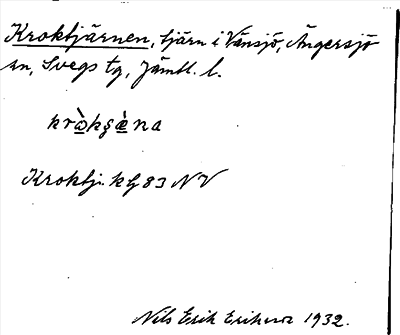 Kroktjärnen, tjärn i Vänsjö, Ängersjö
sn, Svegs tg, Jämtl. l.
krɷ̀kʂæ̀na
Kroktj. kg 83 NV
Nils Erik Eriksson 1932.